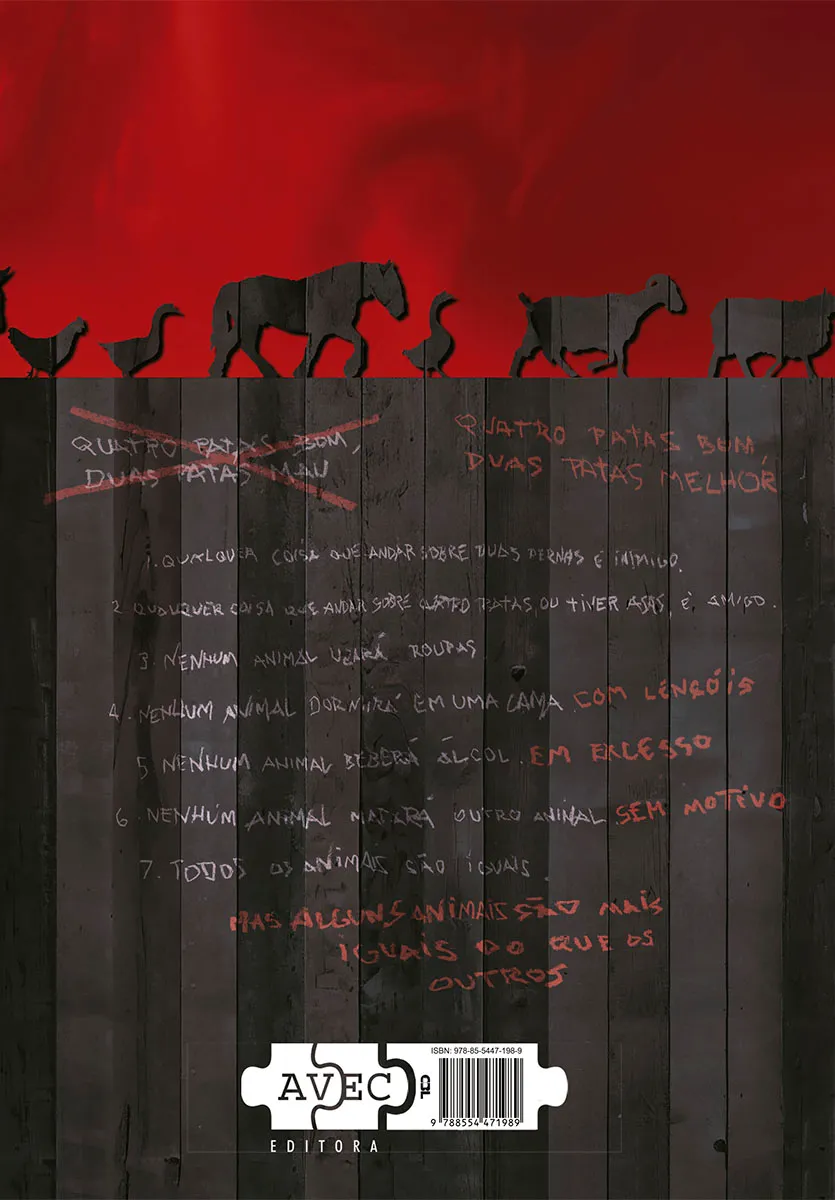 QUATRO PATAS BOM,
DUAS PATAS MAU
QUATRO PATAS BOM,
DUAS PATAS MELHOR
1. QUALQUER COISA QUE ANDAR SOBRE DUAS PERNAS É INIMIGO.
2 QUALQUER COISA QUE ANDAR SOBRE QUATRO PATAS, OU TIVER ASAS, É AMIGO.
3. NENHUM ANIMAL USARÁ ROUPAS
4. NENHUM ANIMAL DORMIRÁ EM UMA CAMA COM LENÇÓIS
5 NENHUM ANIMAL BEBERÁ ÁLCOL. EM EXCESSO
6. NENHUM ANIMAL MATARÁ OUTRO ANIMAL SEM MOTIVO
7. TODOS OS ANIMAIS SÃO IGUAIS.
MAS ALGUNS ANIMAIS SÃO MAIS
IGUAIS DO QUE OS
OUTROS
ISBN: 978-85-5447-198-9
AVEC
EDITORA
9 788554 471989